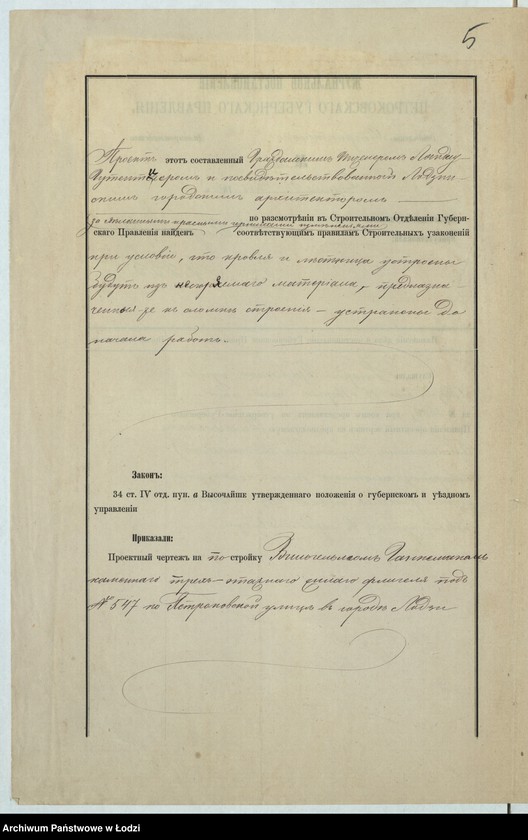 5
Проектъ этотъ составленный Гражданскимъ Инженеромъ Ландау-
Гутентегеромъ и засвидѣтельствованный Лодзин-
скимъ городовымъ архитекторомъ
по разсмотрѣніи въ Строительномъ Отдѣленіи Губерн-
скаго Правленія найденъ соотвѣтствующимъ правиламъ Строительныхъ узаконеній
при условіи, что кровля и лѣстница устроены
будутъ изъ несгораемаго матеріала, предназна-
ченныя же къ сломкѣ строенія – устранены до
начала работъ.
Законъ:
34 ст. IV отд. пун. а Высочайшк утвержденнаго положенія о губернскомъ и уѣздномъ
управленіи
Приказали:
Проектный чертежъ на постройку
каменнаго трехъ-этажнаго флигеля подъ
№ 547 по Петроковской улицѣ въ городѣ Лодзи
Archiwum Państwowe w Łodzi